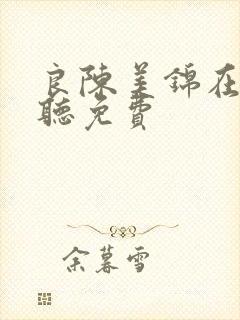 良陳美錦在
聽免費
余暮雪